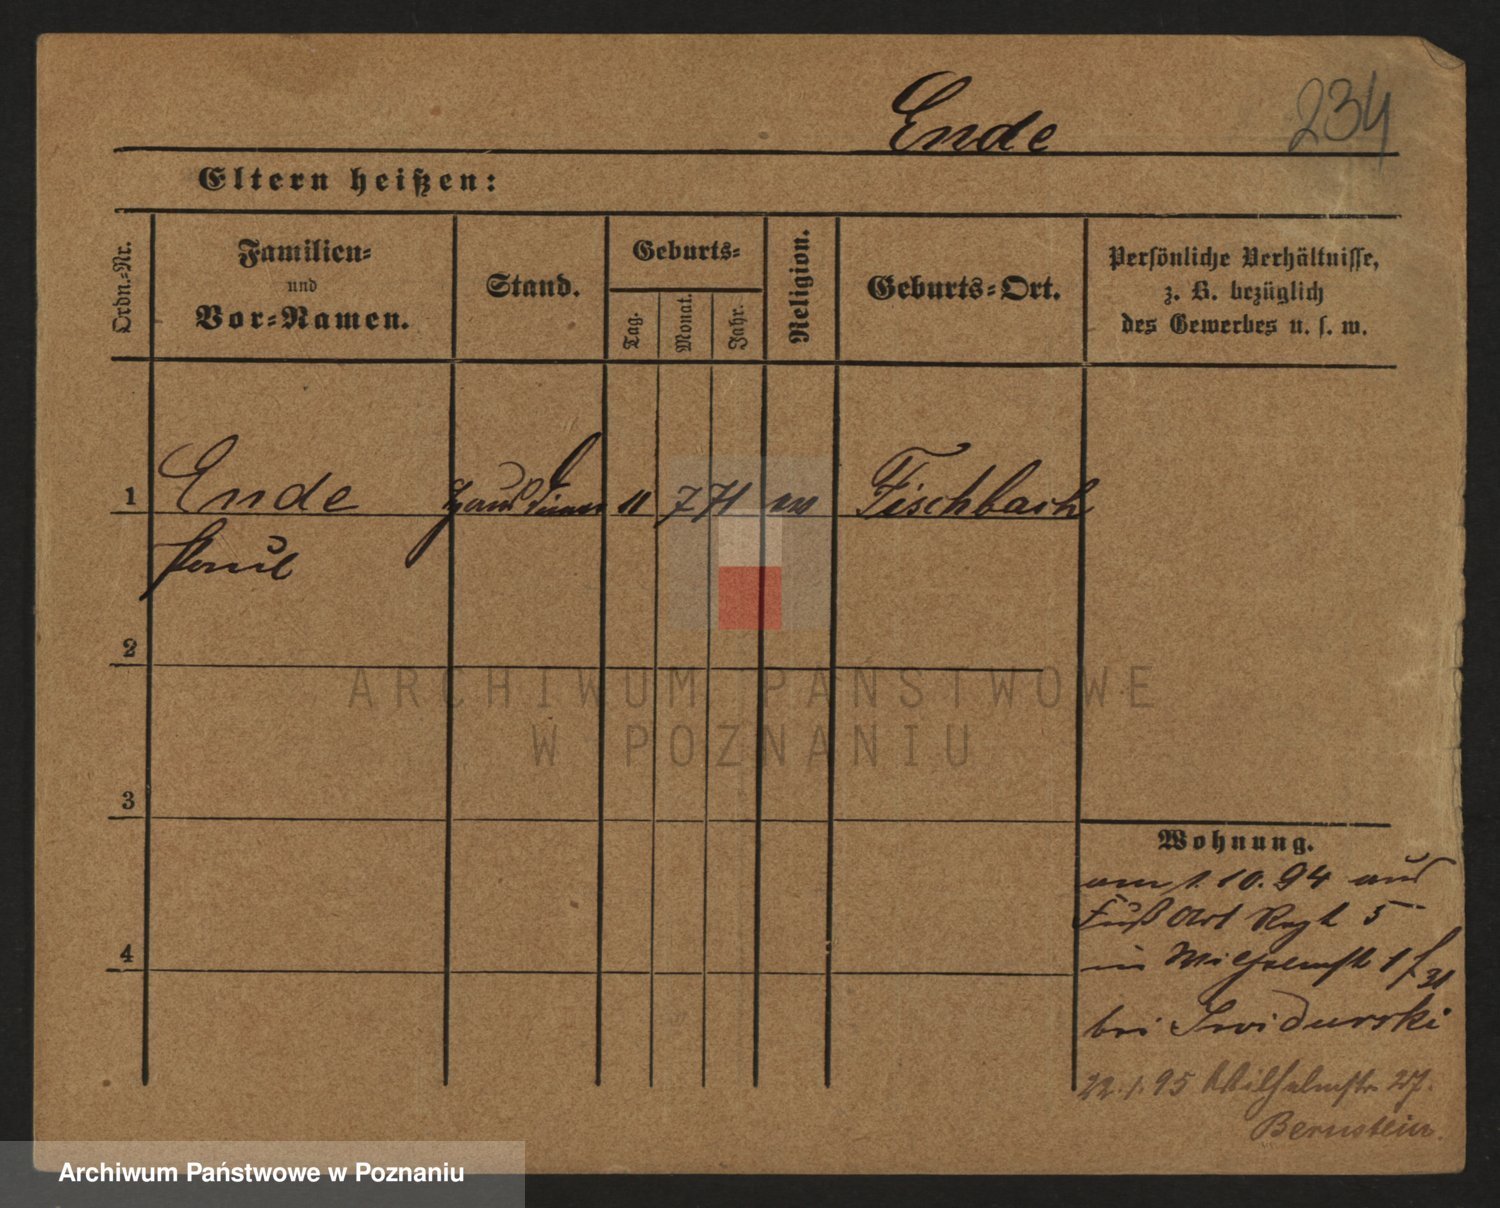 Ende 234
Eltern heißen:
Ordn.-Nr.
Familien-
und
Vor-Namen.
Stand.
Geburts-
Tag.
Monat.
Jahr.
Religion.
Geburts-Ort.
Persönliche Verhältnisse,
z. B. bezüglich
des Gewerbes u. s. w.
1 Ende Hausdiener 11 7 71 Fischbach
Paul
2
3
4
Wohnung.
am 1.10.94 aus
Fuß Art Regt 5
in Wilhelmstr 1
bei Swidurski
22.1.95 Wilhelmstr 27.
Bernstein.
ARCHIWUM PAŃSTWOWE
W POZNANIU
Archiwum Państwowe w Poznaniu